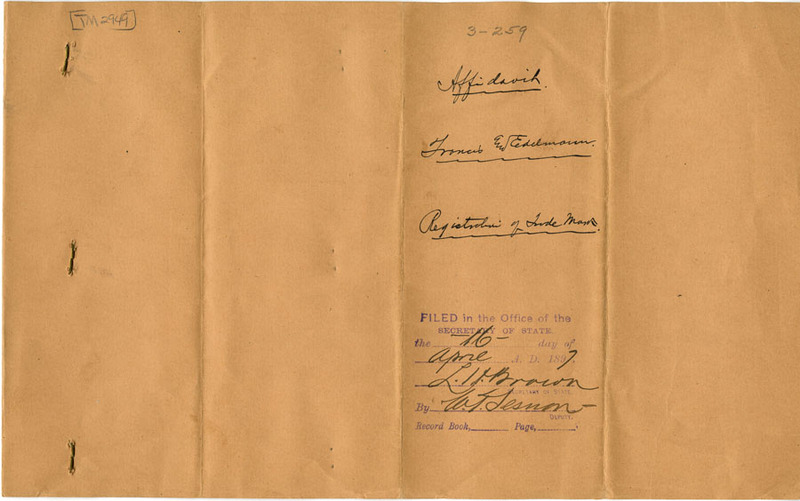 [TM 2949]
3-259
Affidavit.
Francis Edelmann.
Registration of Trade Mark.
FILED in the Office of the
SECRETARY OF STATE.
the 16- day of
April A. D. 1897.
L. H. Brown
SECRETARY OF STATE.
By W. T. Sesnon-
DEPUTY.
Record Book, Page,